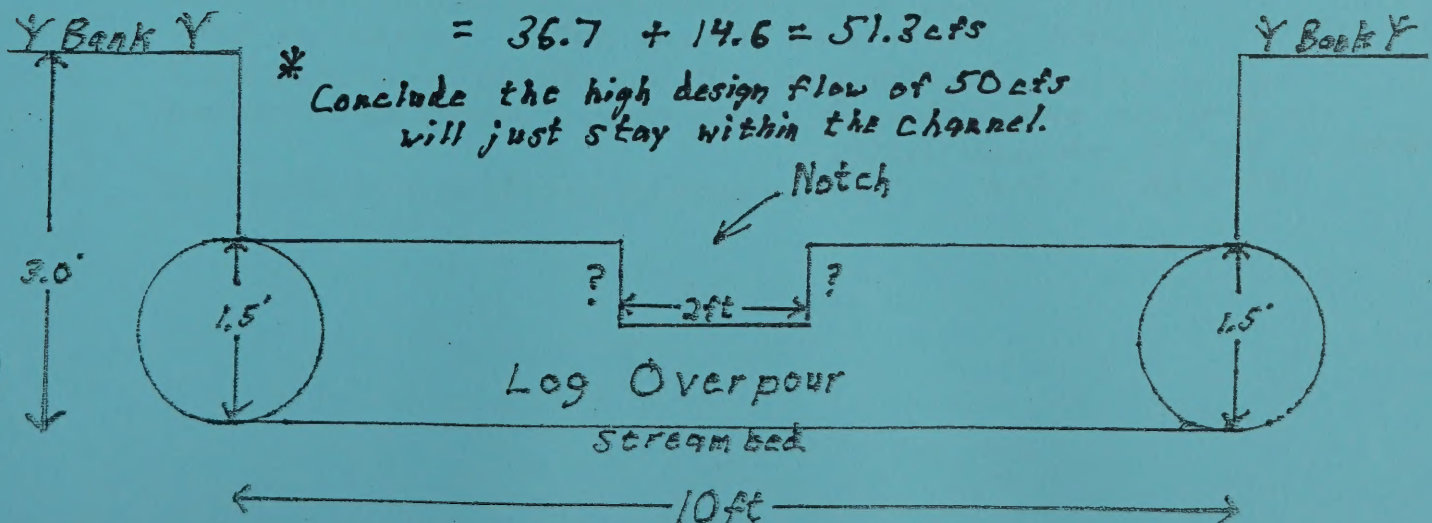 Y Bank Y
= 36.7 + 14.6 = 51.3 cfs
Y Bank Y
* Conclude the high design flow of 50 cfs
will just stay within the channel.
Notch
3.0'
1.5'
?
2ft
?
1.5'
Log Overpour
streambed
10ft